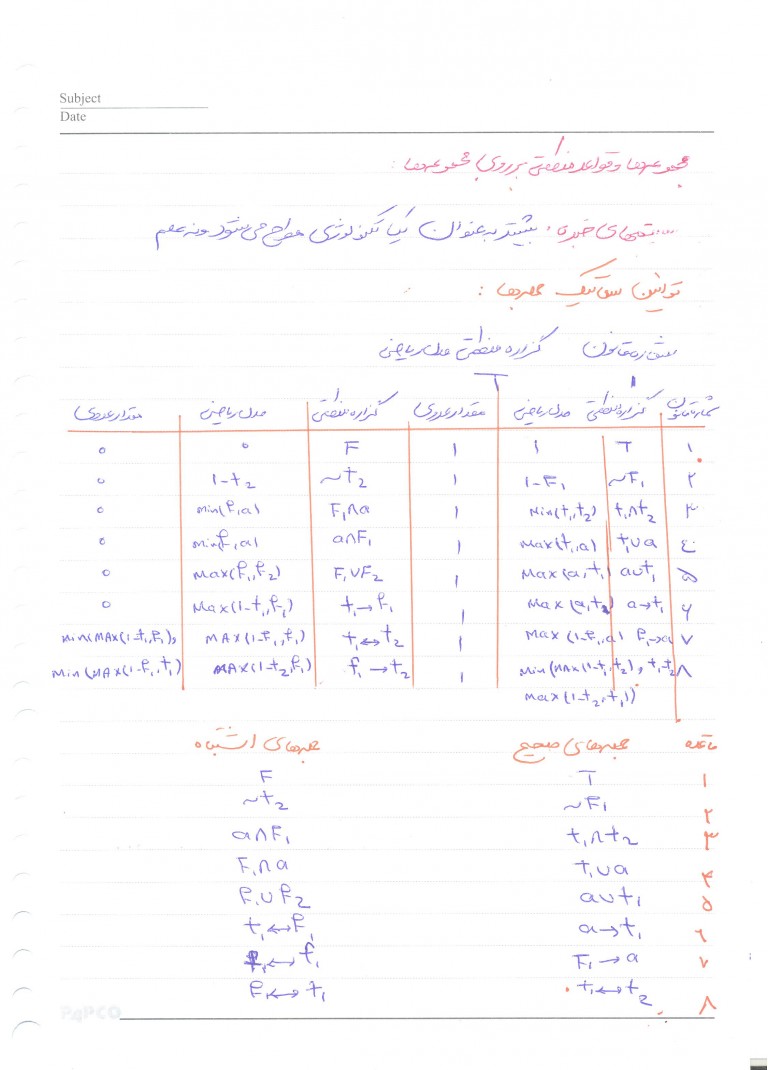 Subject
Date
مجموعه‌ها و قواعد منطقی بر روی مجموعه‌ها :
سیستمهای خبره : بیشتر به عنوان یک تکنولوژی مطرح می‌شود و نه علم
قوانین سمانتیک جبرها :
شماره قانون گزاره منطقی مدل ریاضی
شماره قانون گزاره منطقی مدل ریاضی مقدار عددی گزاره منطقی مدل ریاضی مقدار عددی
۱ T 1 1 F 0 0
۲ ~F₁ 1-F₁ 1 ~t₂ 1-t₂ 0
۳ t₁∩t₂ Min(t₁,t₂) 1 F₁∩a min(f₁,a) 0
٤ t₁∪a Max(t₁,a) 1 a∩F₁ min(f₁,a) 0
۵ a∪t₁ Max(a,t₁) 1 F₁∪F₂ Max(f₁,f₂) 0
۶ a→t₁ Max(a,t₂) 1 t₁→f₁ Max(1-t₁,f₁) 0
۷ f₁→a Max(1-f₁,a) 1 t₁↔t₂ MAX(1-f₁,f₁) Min(MAX(1-t₁,f₁),
۸ t₁-t₂ Min(MAX(1-t₁,t₂), 1 f₁→t₂ MAX(1-t₂,f₁) Min(MAX(1-f₁,t₁)
max(1-t₂,t₁))
قاعده جبرهای صحیح جبرهای اشتباه
۱ T F
۲ ~F₁ ~t₂
۳ t₁∩t₂ a∩F₁
۴ t₁∪a F₁∩a
۵ a∪t₁ f₁∪f₂
۶ a→t₁ t₁↔f₁
۷ F₁→a f₁↔f₁
۸ t₁↔t₂ f₁↔t₁
PAPCO